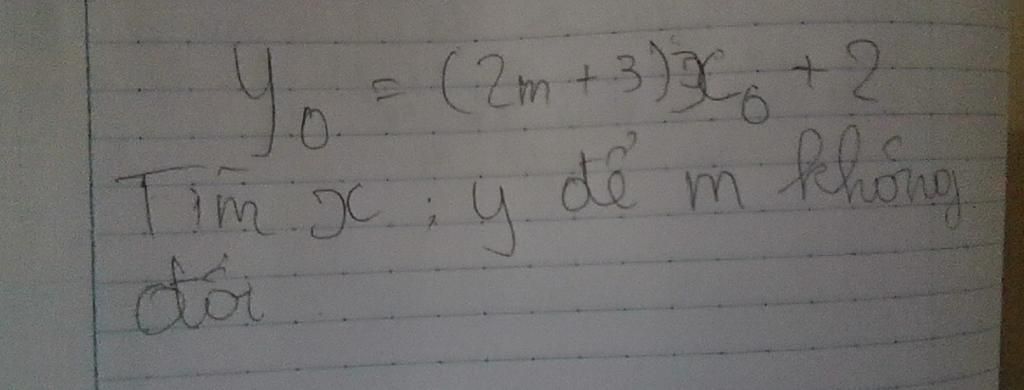 y₀ = (2m + 3)x₀ + 2
Tìm x ; y để m không
đổi